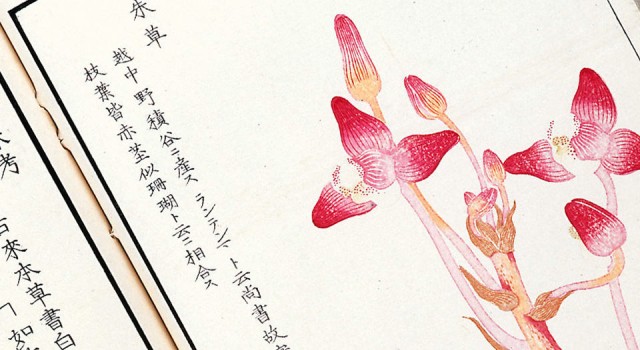 朱草
越中野積谷ニ産ス ランテンマト云尚書故
枝葉皆赤茎似珊瑚ト云ニ相合ス
考 古來本草書白
「如